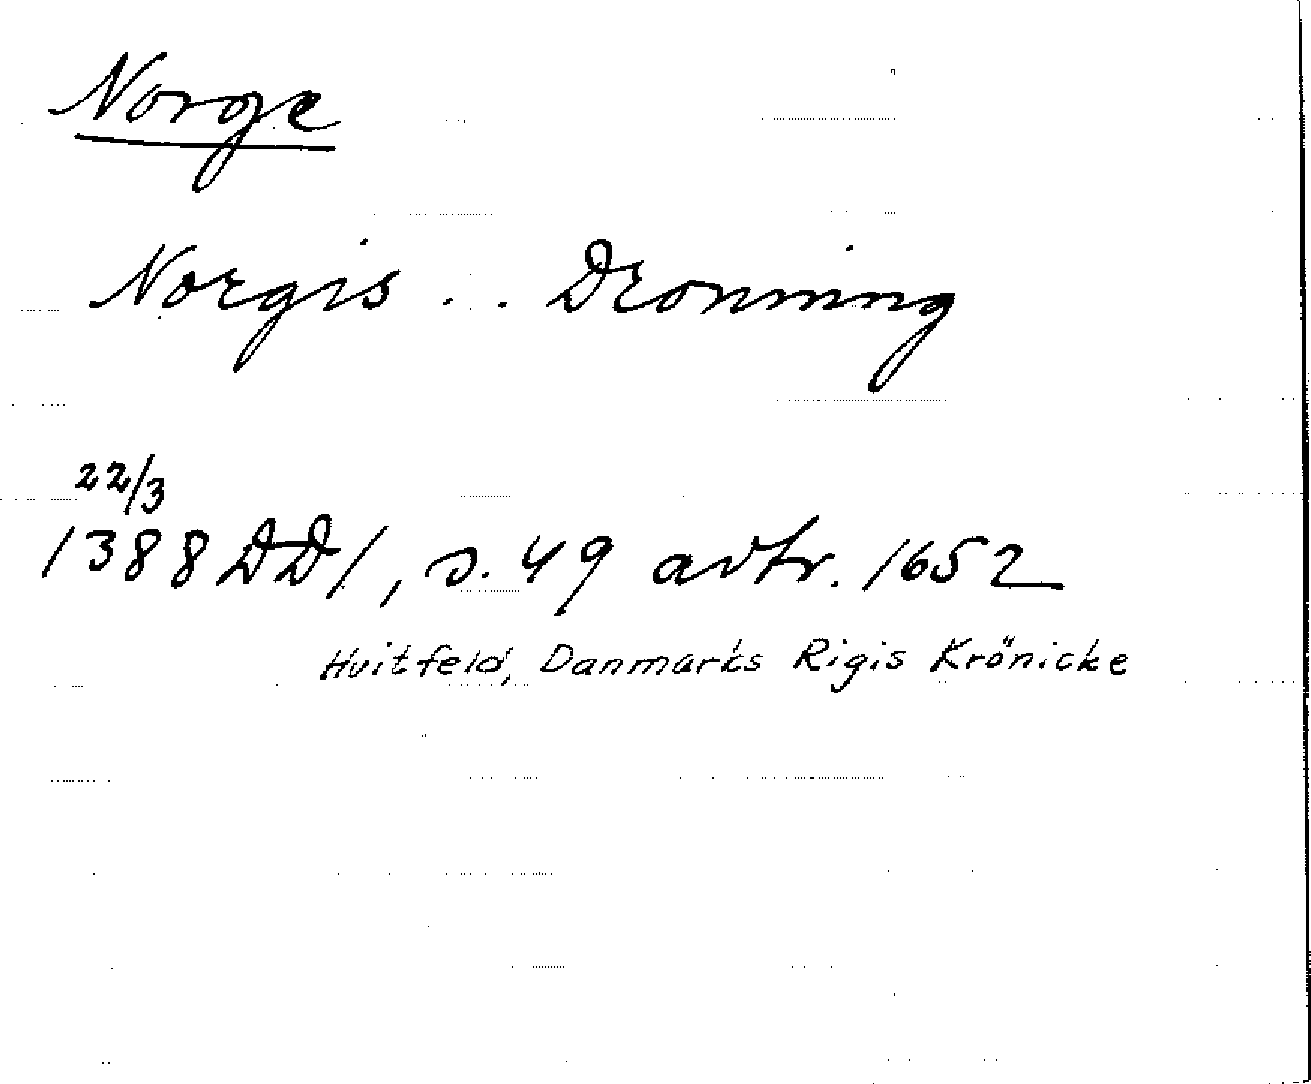 Norge
Norgis . . Dronning
22/3
1388 DD/, s. 49 avtr. 1652
Huitfeld, Danmarks Rigis Krönicke